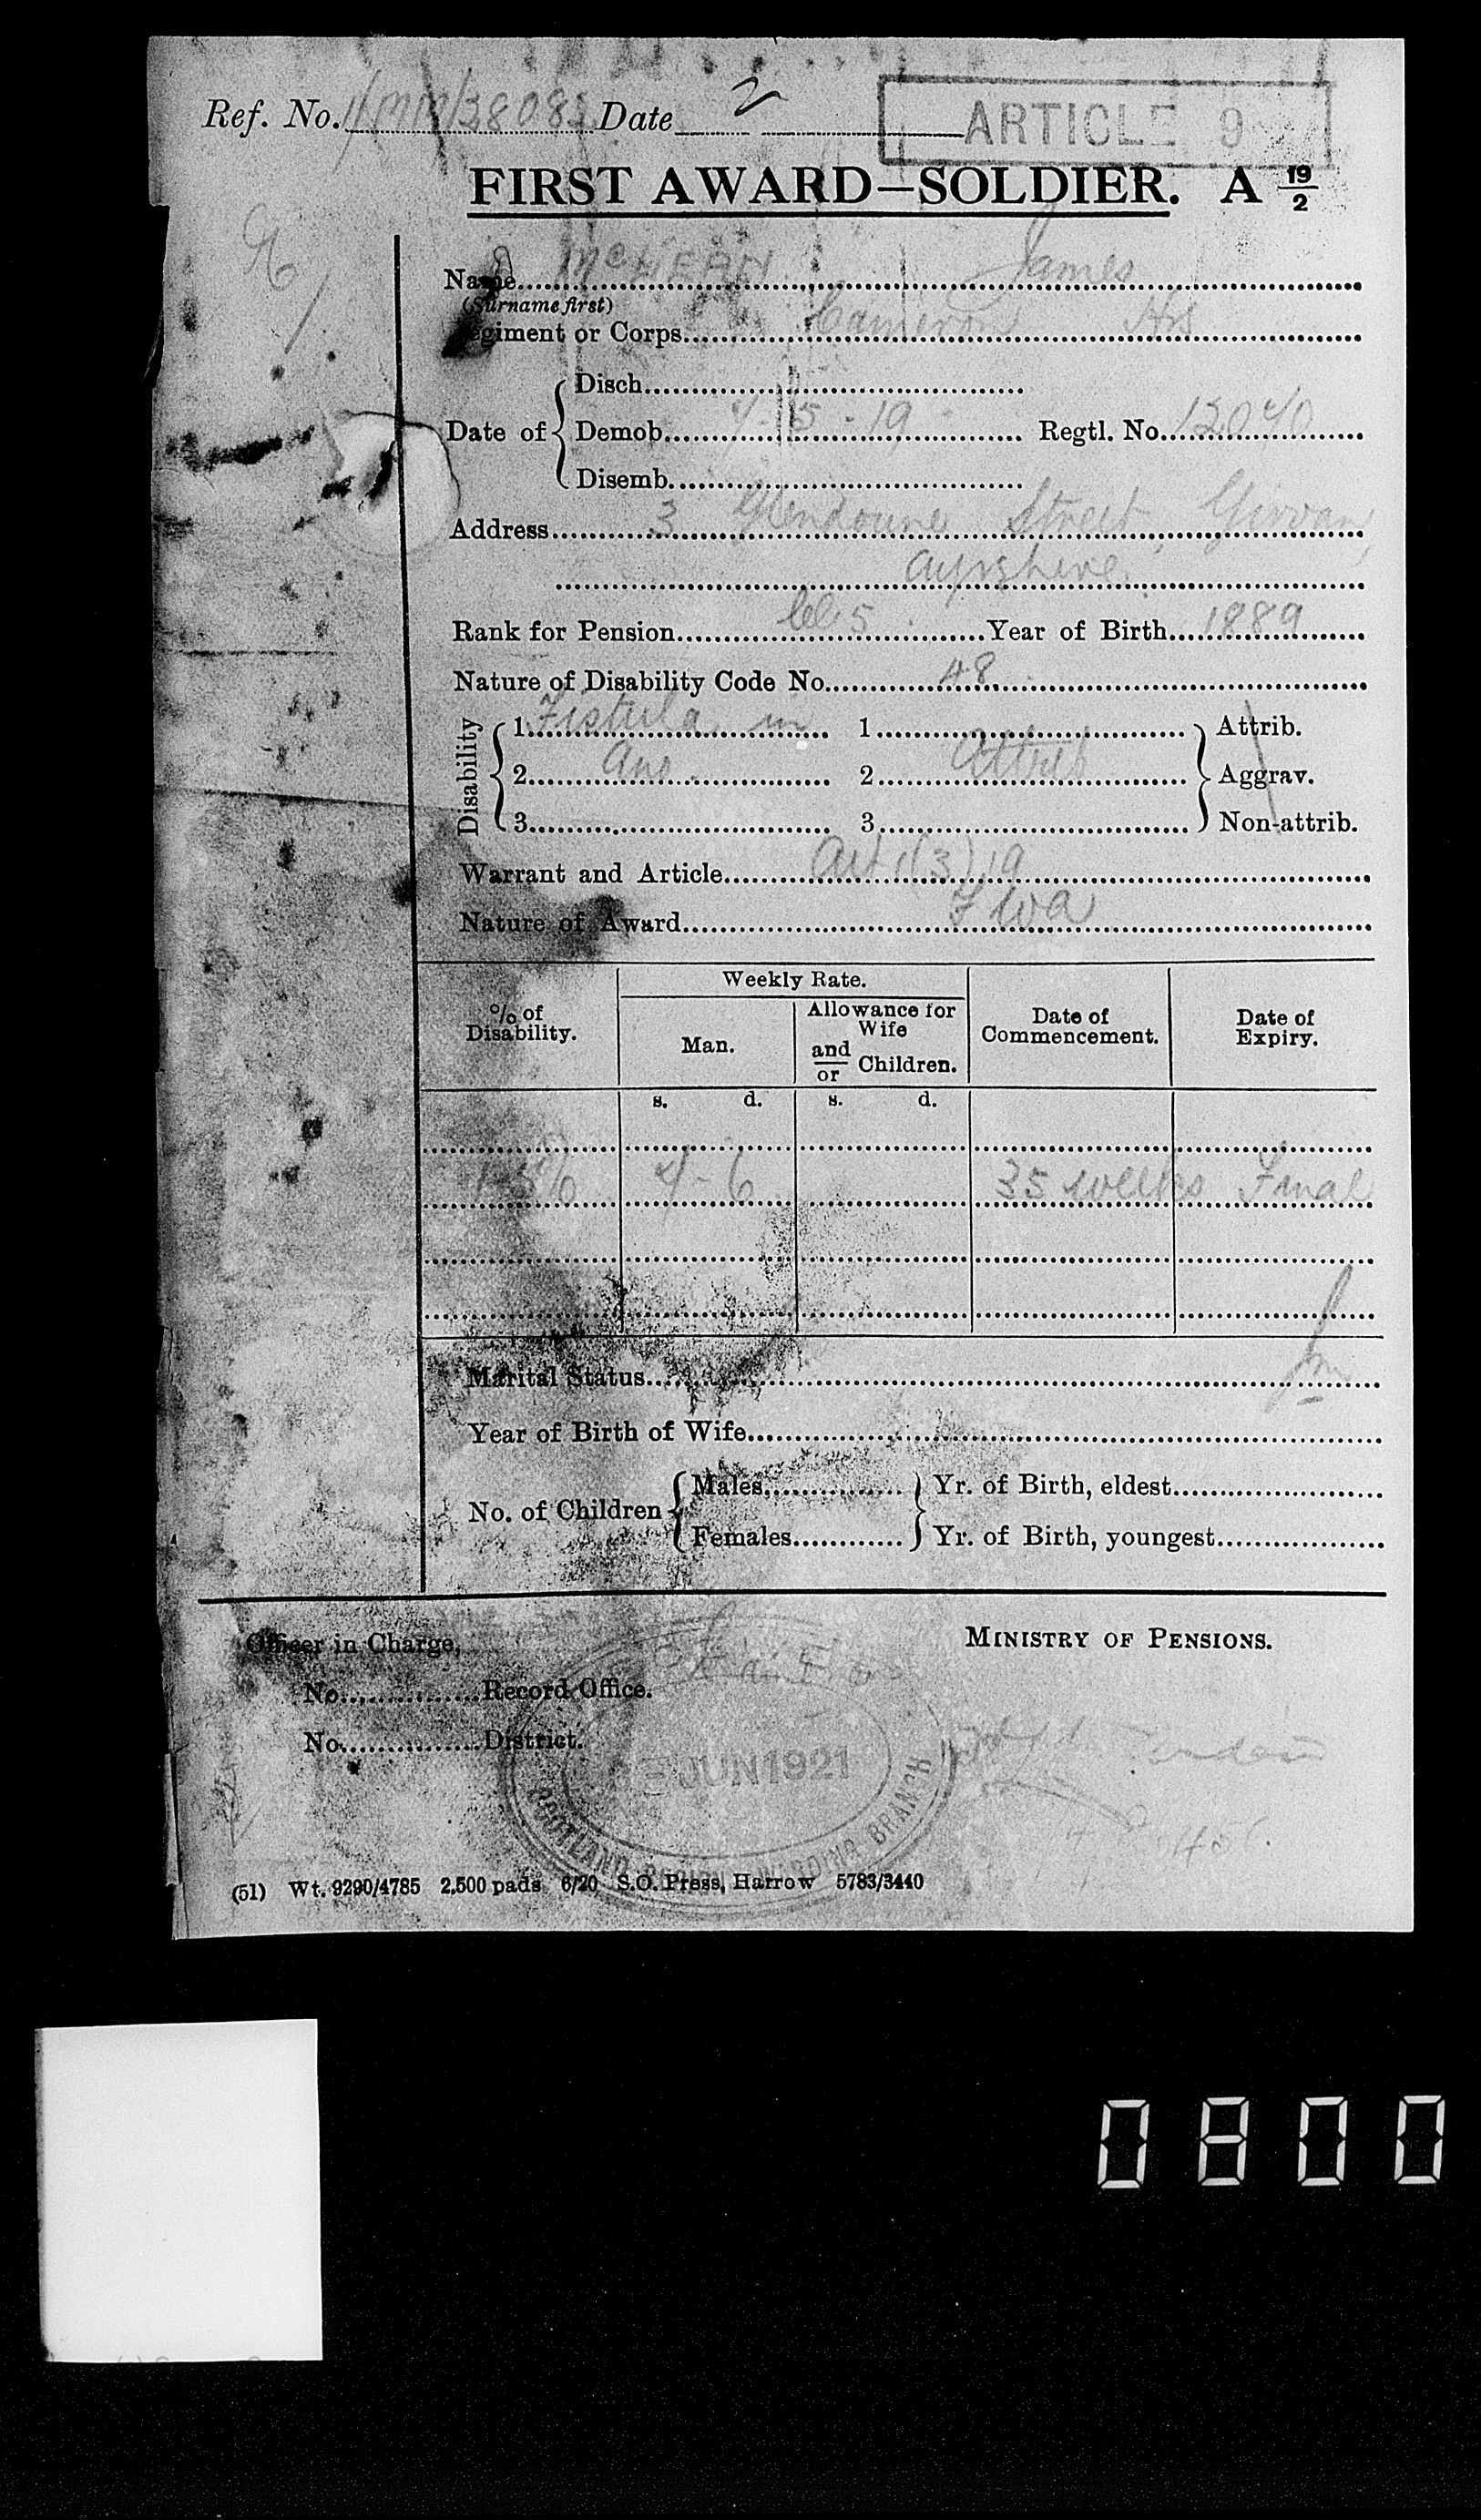 Ref. No. 1/MM/38083 Date 2 ARTICLE 9
FIRST AWARD—SOLDIER. A 19/2
Name McHEAN James
(Surname first)
Regiment or Corps Cameron Hrs
Disch.
Date of Demob. 4-5-19 Regtl. No. 12040
Disemb.
Address 3 Glendoune Street, Girvan,
Ayrshire.
Rank for Pension Cl 5. Year of Birth 1889
Nature of Disability Code No. 48.
Disability
1. Fistula in 1 Attrib.
2 Ano. 2 Attrib Aggrav.
3 3 Non-attrib.
Warrant and Article Art 1(3) 19
Nature of Award F W A
% of Disability.
Weekly Rate.
Man.
Allowance for Wife and/or Children.
Date of Commencement.
Date of Expiry.
s. d. s. d.
1-5% 4-6 35 weeks Final
Marital Status
Year of Birth of Wife
No. of Children Males Yr. of Birth, eldest
Females Yr. of Birth, youngest
Officer in Charge, MINISTRY OF PENSIONS.
No. Record Office.
No. District.
JUN 1921
SCOTLAND REGION AWARDING BRANCH
(51) Wt. 9290/4785 2,500 pads 6/20 S.O. Press, Harrow 5783/3440
0800